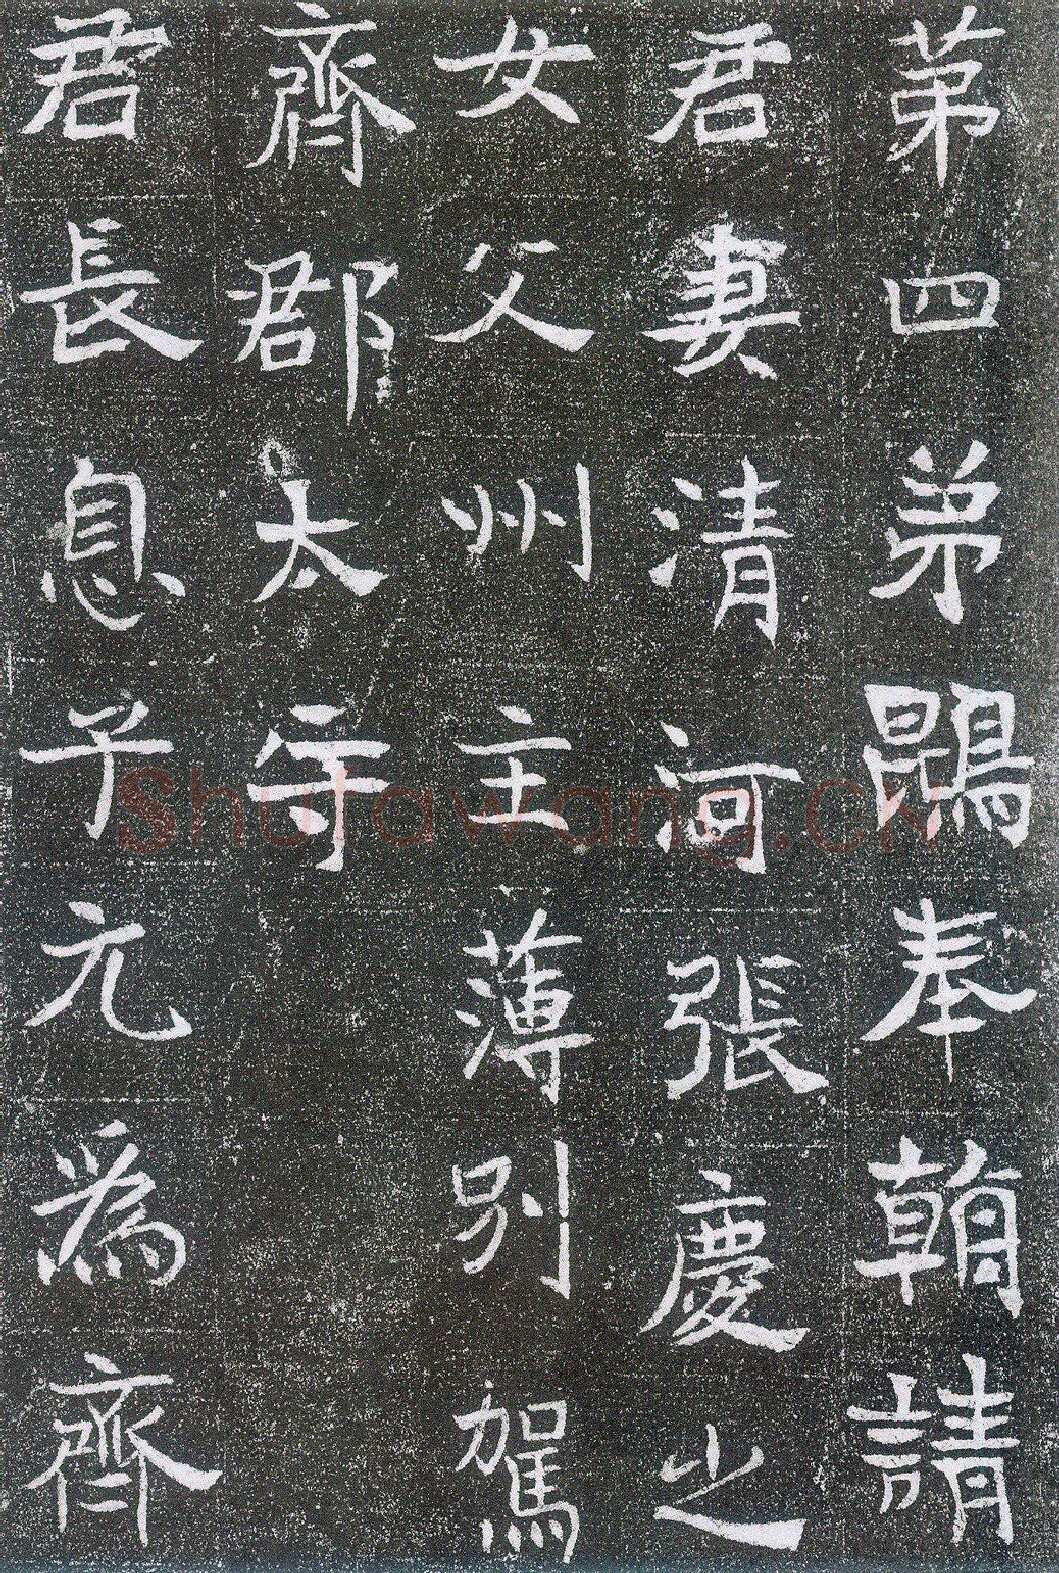 第四弟鶤奉朝請
君妻清河張慶之
女父州主薄別駕
齊郡太守
君長息子元為齊
Shufawang.CN